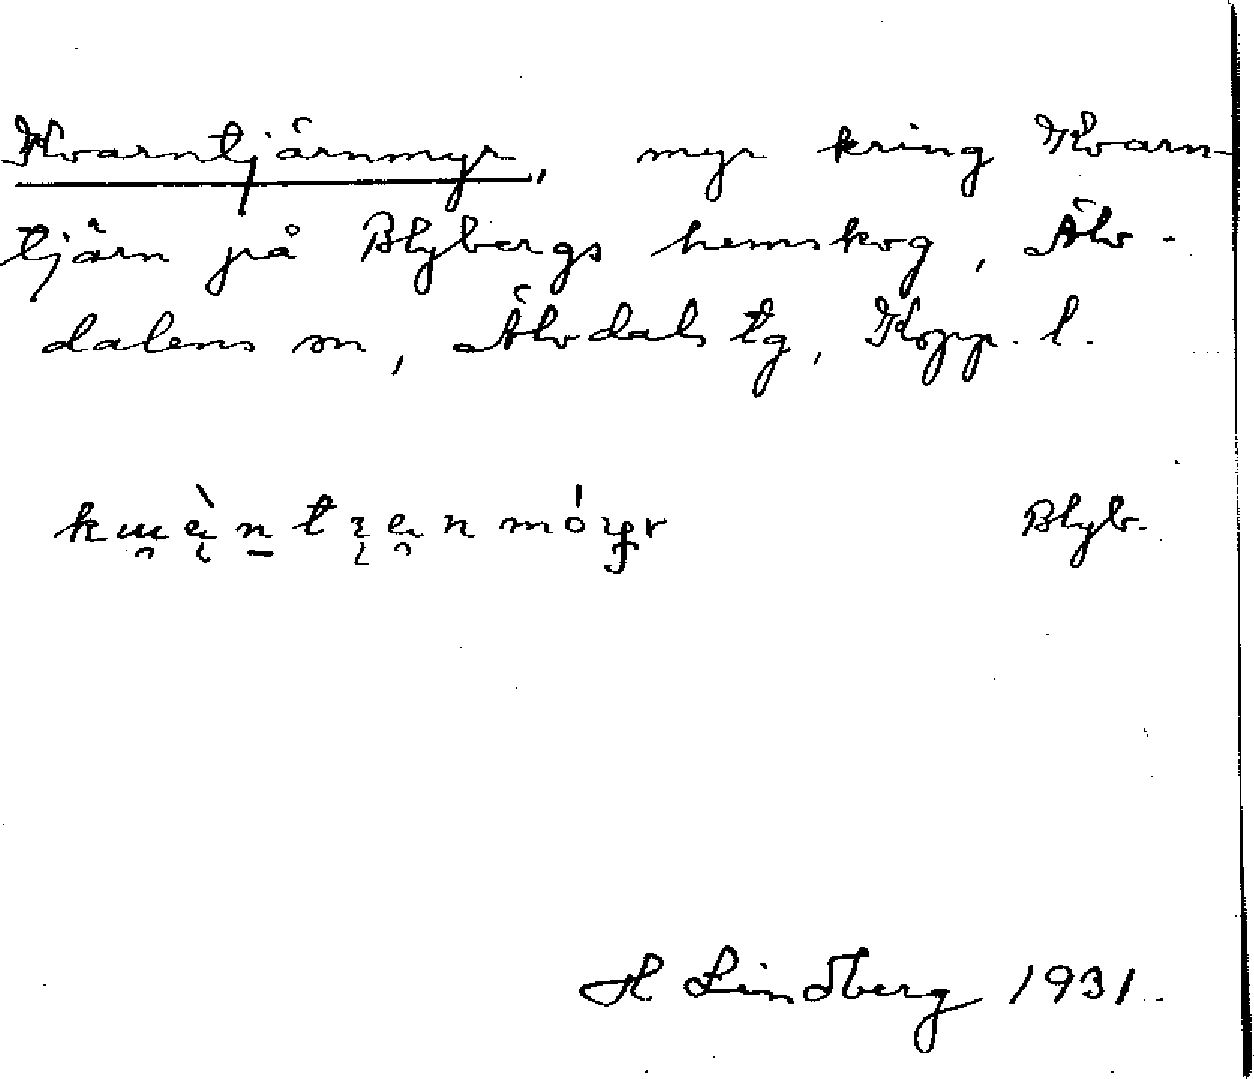 Kvarntjärnmyr, myr kring Kvarn-
tjärn på Blybergs hemskog, Älv-
dalens sn, Älvdals tg, Kopp. l.
Blyb.
H Lindberg 1931.